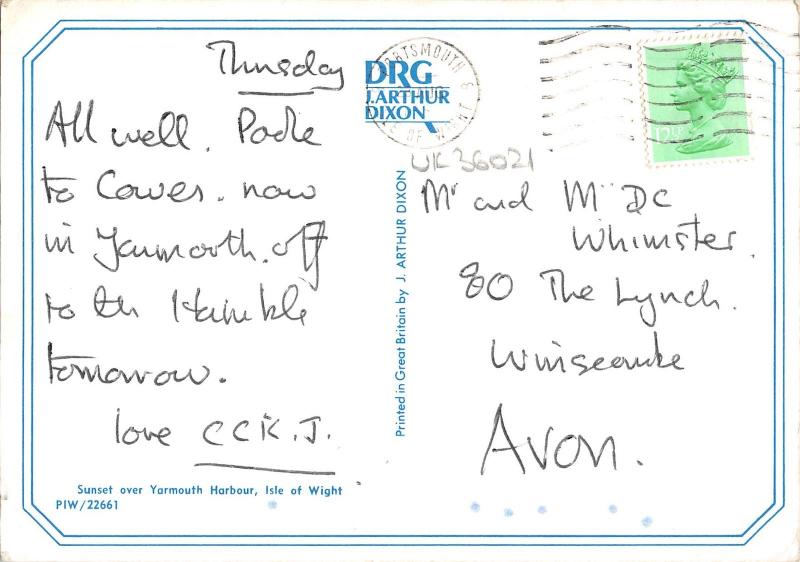 Thursday
All well. Poole
to Cowes. now
in Yarmouth. off
to the Hamble
tomorrow.
love CCK.J.
Sunset over Yarmouth Harbour, Isle of Wight
PIW/22661
DRG
J.ARTHUR
DIXON
Printed in Great Britain by J. ARTHUR DIXON
PORTSMOUTH &
ISLE OF WIGHT
12½P
UK36021
Mr and Mrs DC
Whimster.
80 The Lynch.
Winscombe
Avon.